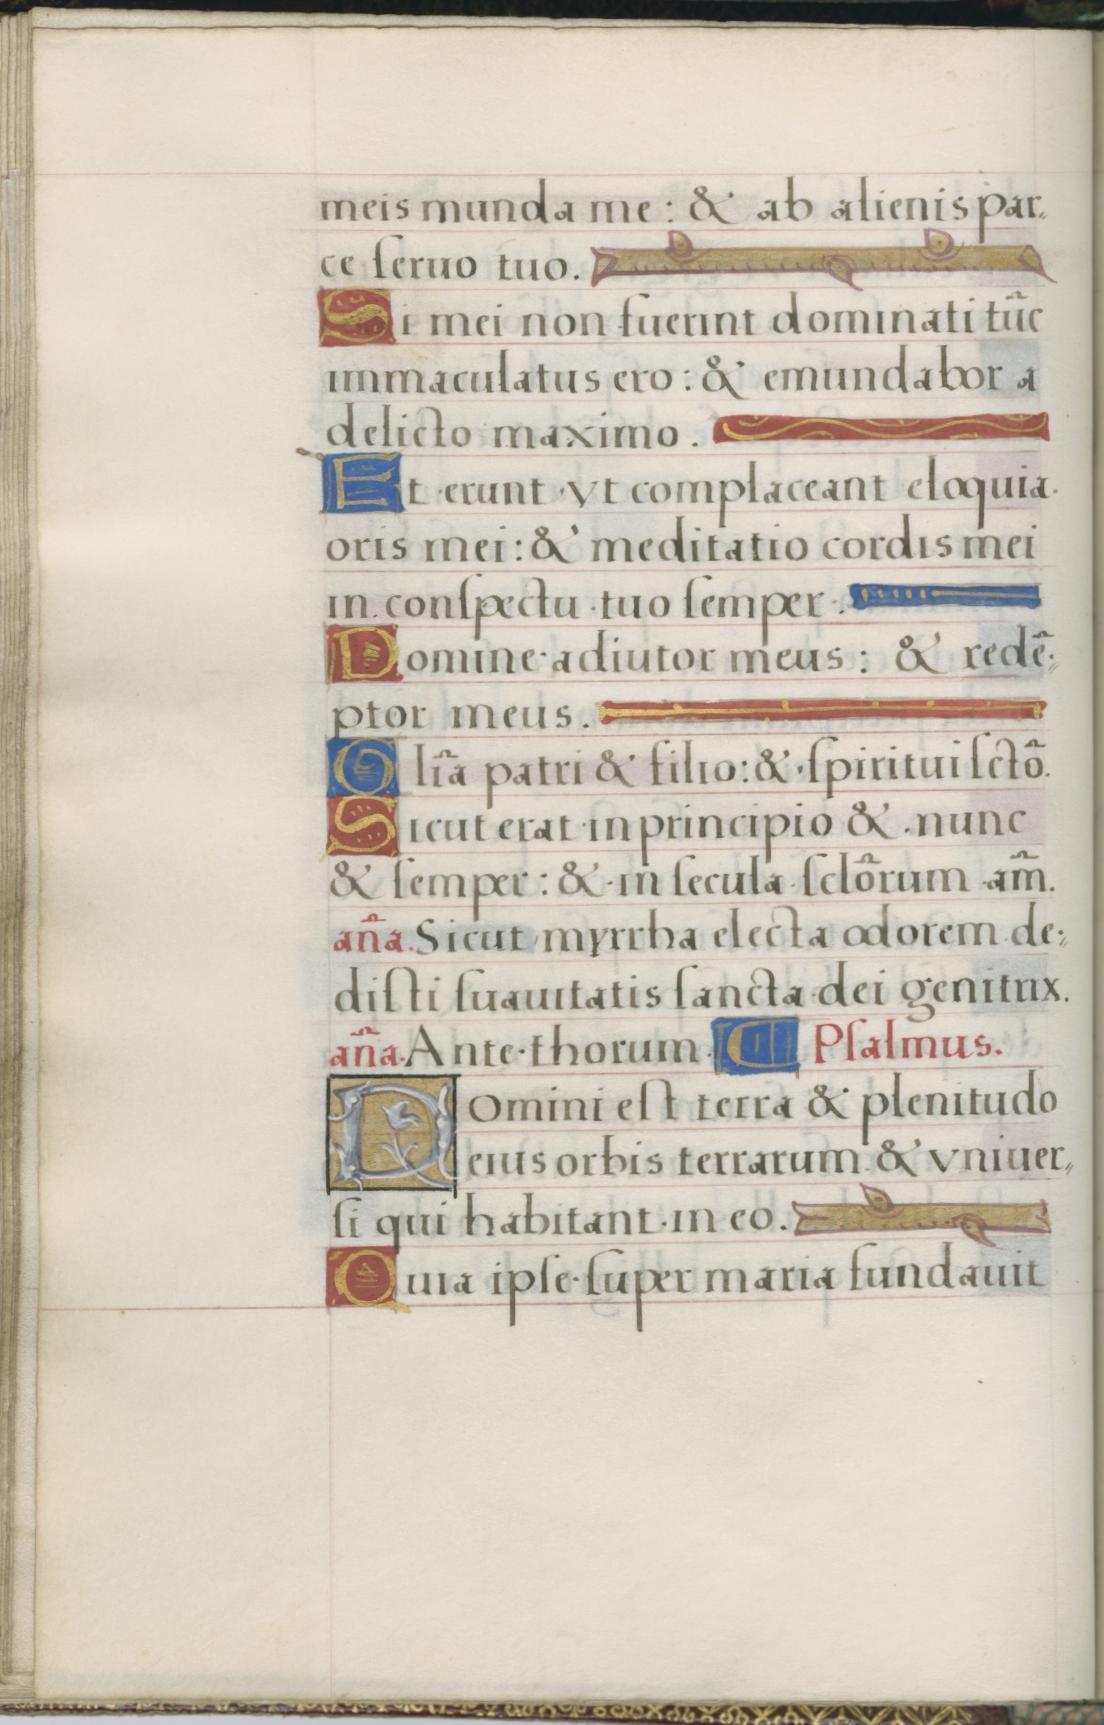 meis munda me : & ab alienis par,,
ce ſeruo tuo.
Si mei non fuerint dominati tũc
immaculatus ero : & emundabor a
delicto maximo .
Et erunt vt complaceant eloquia.
oris mei : & meditatio cordis mei
in conſpectu tuo ſemper .
Domine adiutor meus : & redẽ:,
ptor meus .
Gli̴a patri & filio : & ſpiritui ſctõ.
Sicut erat in principio & nunc
& ſemper : & in ſecula ſclõrum am̃.
añа. Sicut myrrha electa odorem de:,
diſti ſuauitatis ſancta dei genitrix.
aña. Ante thorum. Pſalmus.
Domini eſt terra & plenitudo
eius orbis terrarum & vniuer,,
ſi qui habitant in eo.
Quia ipſe ſuper maria fundauit